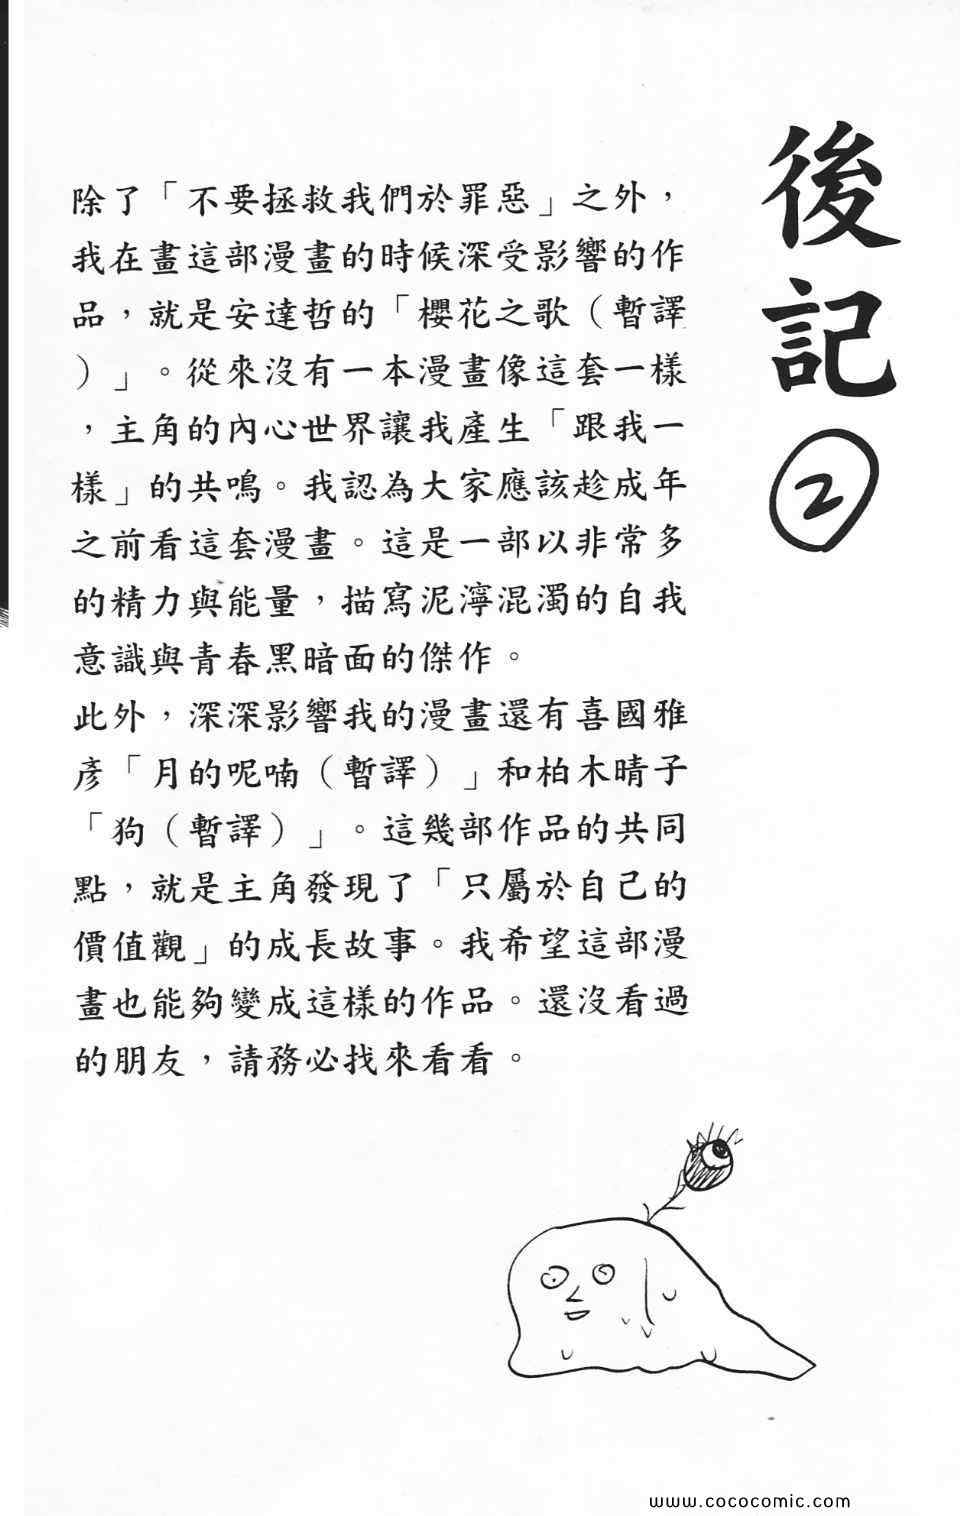 後記②
除了「不要拯救我們於罪惡」之外，
我在畫這部漫畫的時候深受影響的作
品，就是安達哲的「櫻花之歌（暫譯
）」。從來沒有一本漫畫像這套一樣
，主角的內心世界讓我產生「跟我一
樣」的共鳴。我認為大家應該趁成年
之前看這套漫畫。這是一部以非常多
的精力與能量，描寫泥濘混濁的自我
意識與青春黑暗面的傑作。
此外，深深影響我的漫畫還有喜國雅
彥「月的呢喃（暫譯）」和柏木晴子
「狗（暫譯）」。這幾部作品的共同
點，就是主角發現了「只屬於自己的
價值觀」的成長故事。我希望這部漫
畫也能夠變成這樣的作品。還沒看過
的朋友，請務必找來看看。
www.cococomic.com